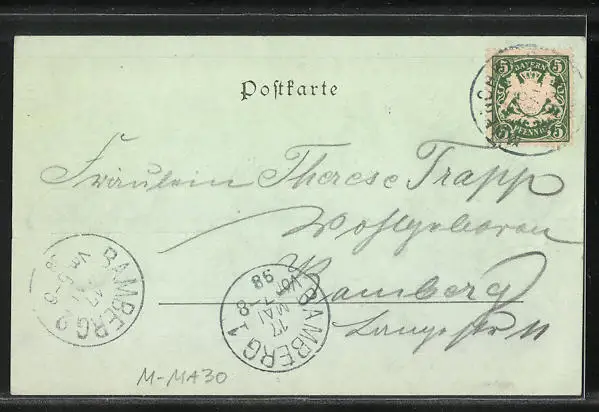 Postkarte
5 BAYERN 5
5 PFENNIG 5
MÜNCHEN
Fräulein Therese Trapp
Wohlgeboren
Bamberg
Langestr 11
BAMBERG 2
17
BAMBERG 1
17 MAI
VOR 7-8
98
M-MA30